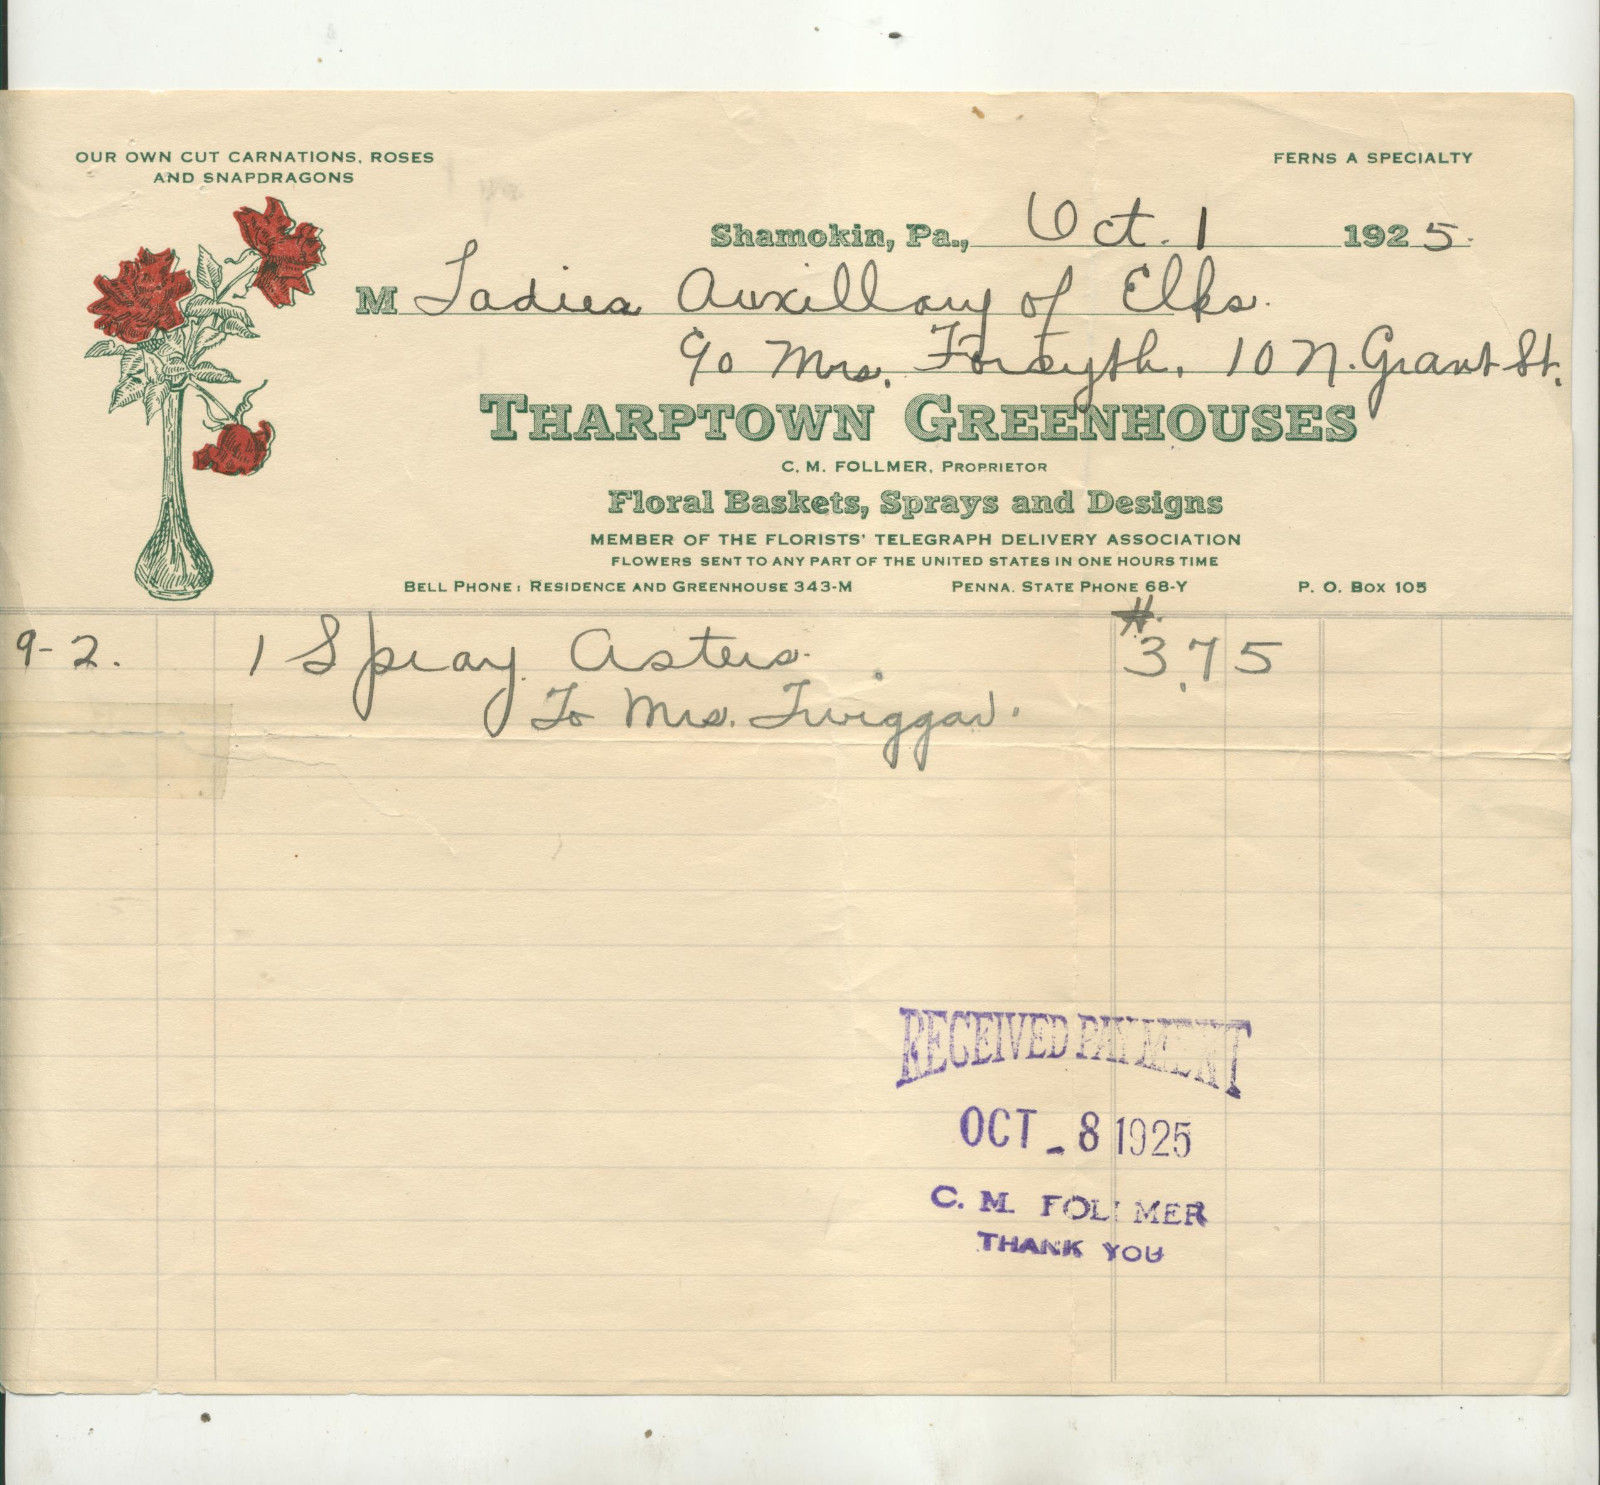 OUR OWN CUT CARNATIONS, ROSES
AND SNAPDRAGONS
FERNS A SPECIALTY
Shamokin, Pa., Oct. 1 1925.
M Ladies Auxillary of Elks.
c/o Mrs. Forsyth. 10 N. Grant St.
THARPTOWN GREENHOUSES
C. M. FOLLMER, PROPRIETOR
Floral Baskets, Sprays and Designs
MEMBER OF THE FLORISTS' TELEGRAPH DELIVERY ASSOCIATION
FLOWERS SENT TO ANY PART OF THE UNITED STATES IN ONE HOURS TIME
BELL PHONE: RESIDENCE AND GREENHOUSE 343-M PENNA. STATE PHONE 68-Y P. O. BOX 105
9-2. 1 Spray Asters. #3.75
To Mrs. Twiggar.
RECEIVED PAYMENT
OCT _ 8 1925
C. M. FOLLMER
THANK YOU